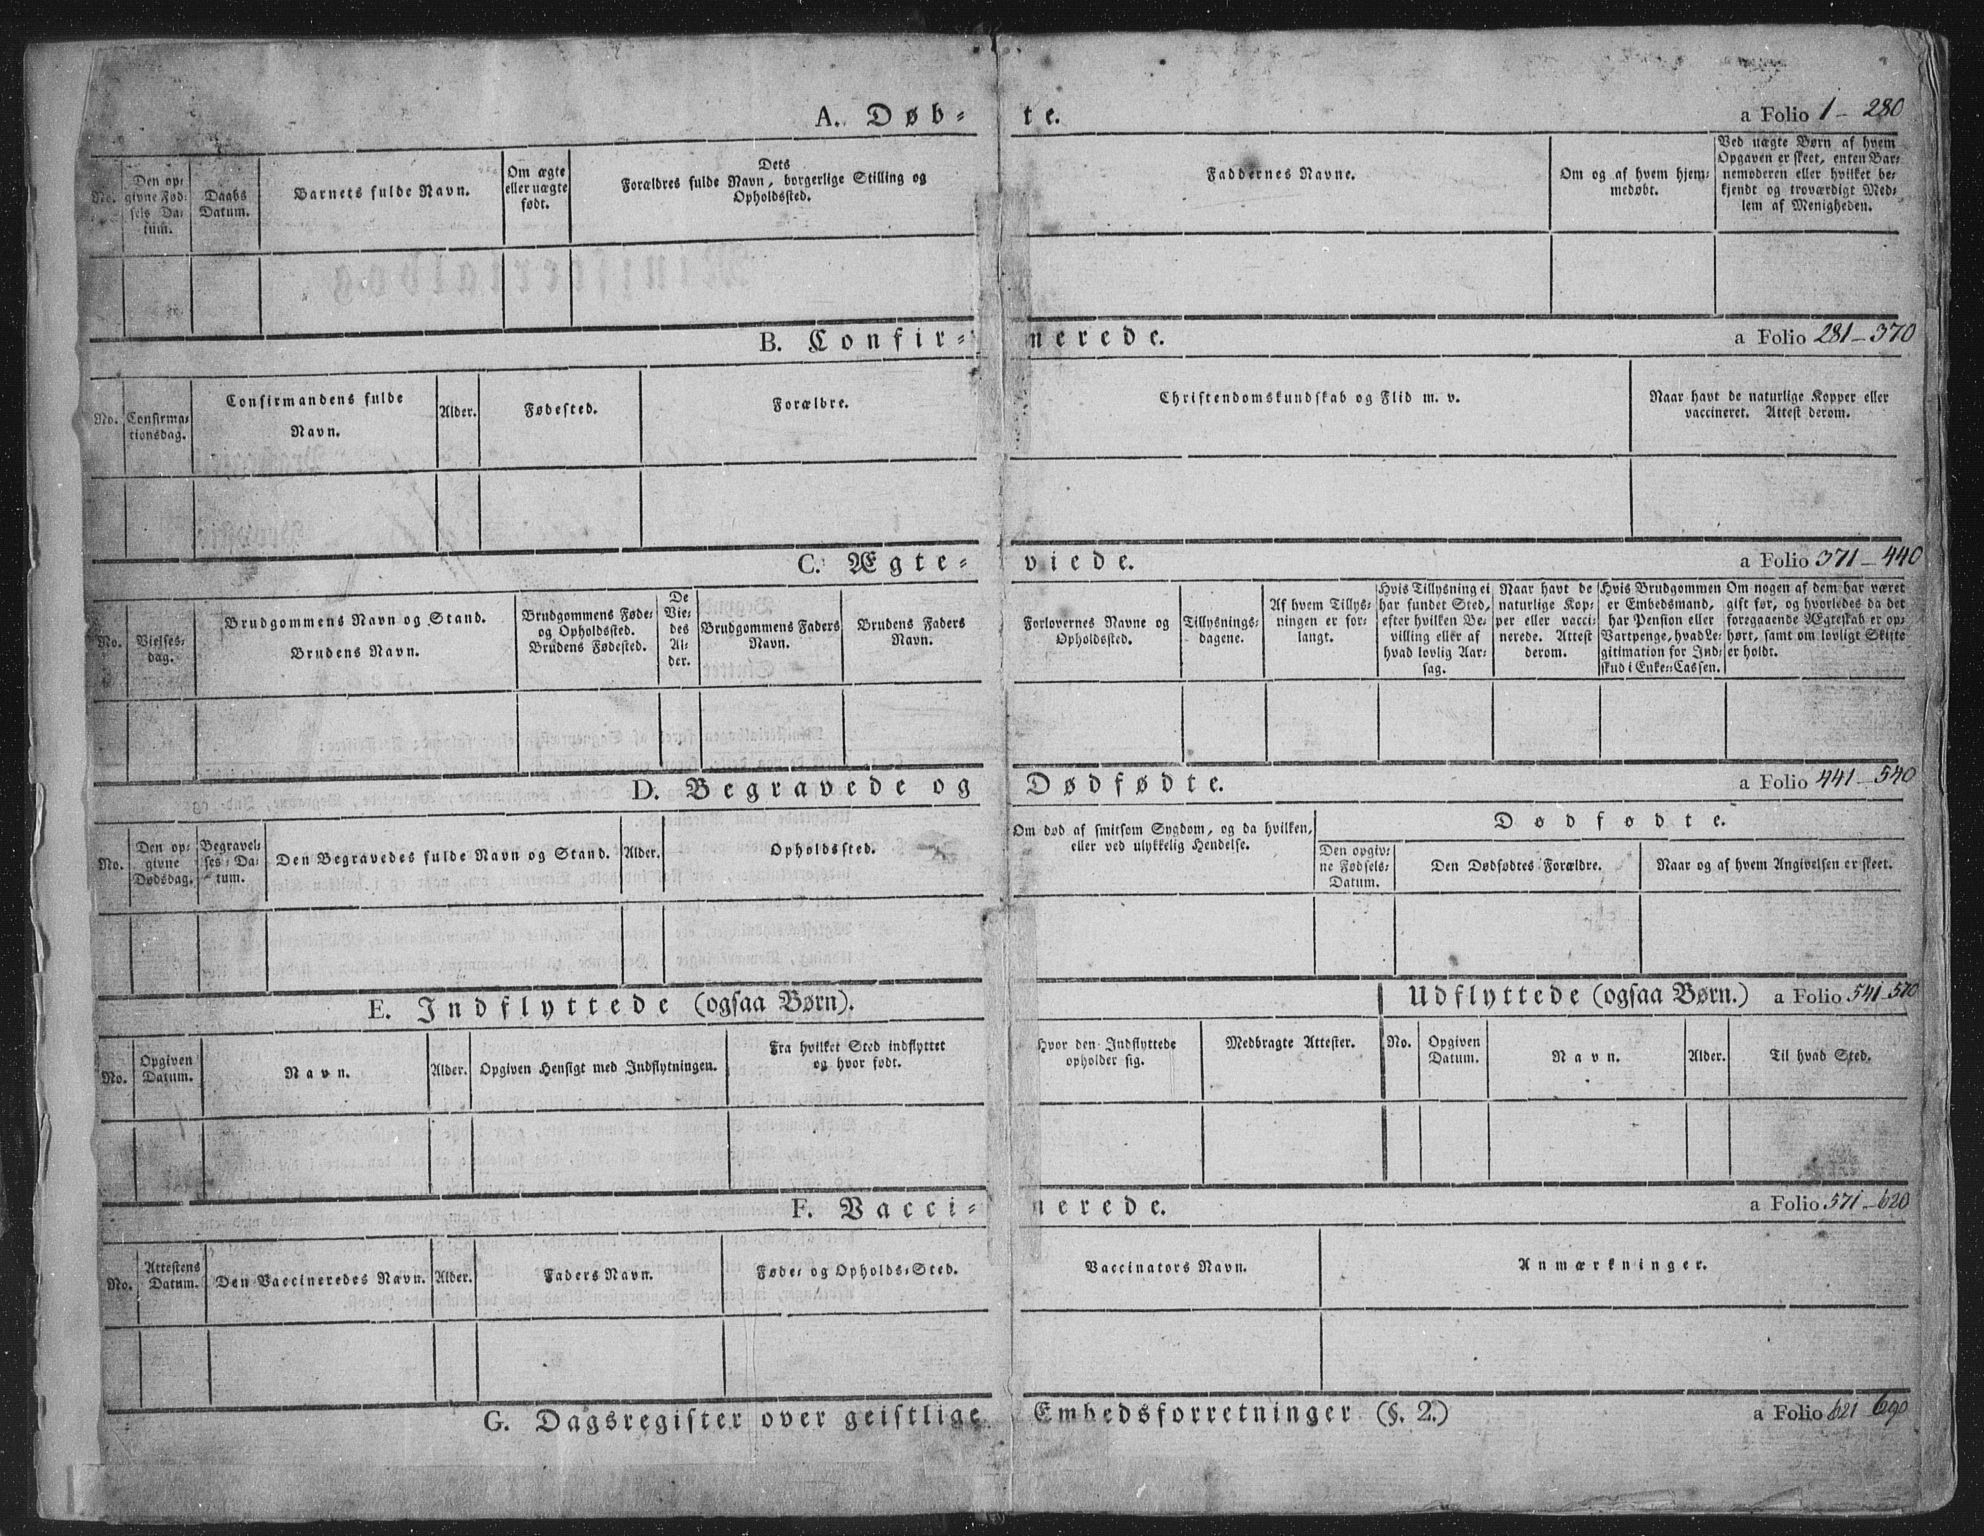 A. Døb= te. a Folio 1 - 280
No.
Den op=
givne Fød=
sels Da=
tum.
Daabs
Datum.
Barnets fulde Navn.
Om ægte
eller uægte
født.
Dets
Forældres fulde Navn, borgerlige Stilling og
Opholdssted.
Faddernes Navne.
Om og af hvem hjem=
medøbt.
Ved uægte Børn af hvem
Opgaven er skeet, enten Bar=
nemoderen eller hvilket be=
kjendt og troværdigt Med=
lem af Menigheden.
B. Confir= merede. a Folio 281 - 370
No.
Confirma=
tionsdag.
Confirmandens fulde
Navn.
Alder.
Fødested.
Forældre.
Christendomskundskab og Flid m. v.
Naar havt de naturlige Kopper eller
vaccineret. Attest derom.
C. Ægte= viede. a Folio 371 - 440
No.
Vielses=
dag.
Brudgommens Navn og Stand.
Brudens Navn.
Brudgommens Føde=
og Opholdssted.
Brudens Fødested.
De
Vie=
des
Al=
der.
Brudgommens Faders
Navn.
Brudens Faders
Navn.
Forlovernes Navne og
Opholdssted.
Tillysnings=
dagene.
Af hvem Tillys=
ningen er for=
langt.
Hvis Tillysning ei
har fundet Sted,
efter hvilken Be=
villing eller af
hvad lovlig Aar=
sag.
Naar havt de
naturlige Kop=
per eller vacci=
nerede. Attest
derom.
Hvis Brudgommen
er Embedsmand,
har Pension eller
Vartpenge, hvad Le=
gitimation for Ind=
skud i Enke=Cassen.
Om nogen af dem har været
gift før, og hvorledes da det
foregaaende Ægteskab er op=
hørt, samt om lovligt Skifte
er holdt.
D. Begravede og Dødfødte. a Folio 441 - 540
No.
Den op=
givne
Dødsdag.
Begravel=
ses=Da=
tum.
Den Begravedes fulde Navn og Stand.
Alder.
Opholdssted.
Om død af smitsom Sygdom, og da hvilken,
eller ved ulykkelig Hendelse.
Dødfødte.
Den opgiv=
ne Fødsels=
Datum.
Den Dødfødtes Forældre.
Naar og af hvem Angivelsen er skeet.
E. Indflyttede (ogsaa Børn). Udflyttede (ogsaa Børn.) a Folio 541 - 570
No.
Opgiven
Datum.
Navn.
Alder.
Opgiven Hensigt med Indflytningen.
Fra hvilket Sted indflyttet
og hvor født.
Hvor den Indflyttede
opholder sig.
Medbragte Attester.
No.
Opgiven
Datum.
Navn.
Alder.
Til hvad Sted.
F. Vacci= nerede. a Folio 571 - 620
No.
Attestens
Datum.
Den Vaccineredes Navn.
Alder.
Faders Navn.
Føde= og Opholds=Sted.
Vaccinators Navn.
Anmærkninger.
G. Dagsregister over geistlige Embedsforretninger (§. 2.) a Folio 621 - 690